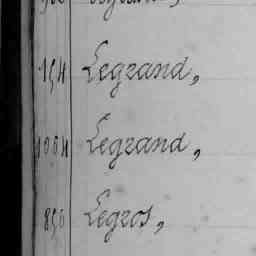 154 Legrand,
1004 Legrand,
850 Legros,